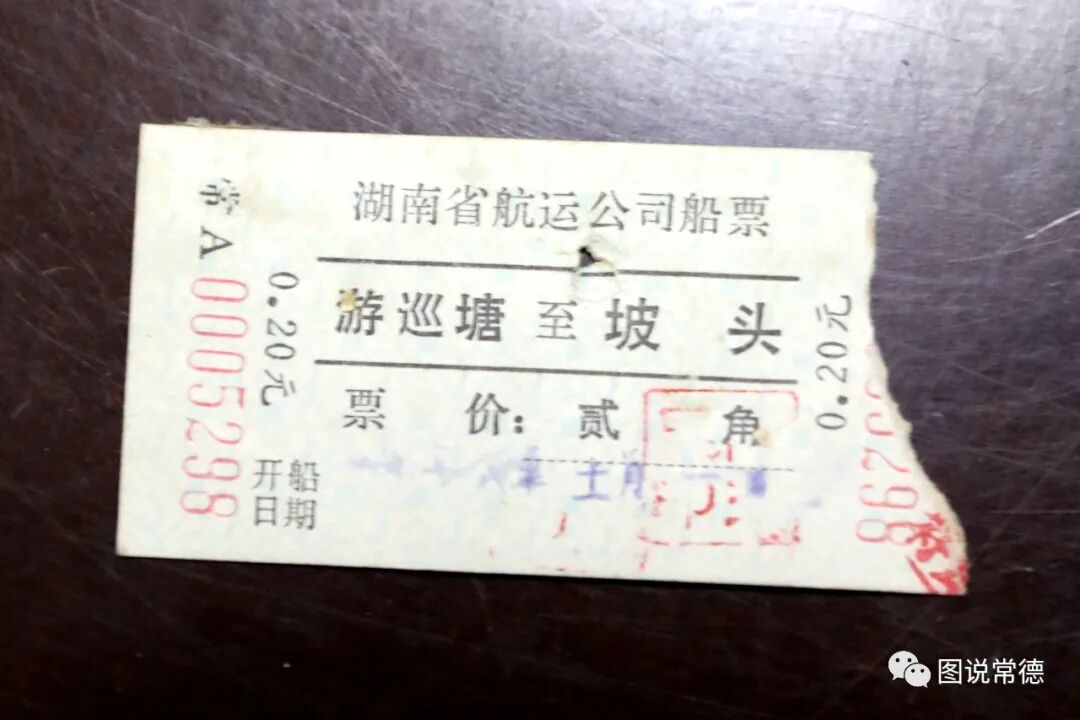 湖南省航运公司船票
游巡塘至坡头
票价：贰角
开船
日期
常A 0005298
0.20元
0.20元
图说常德